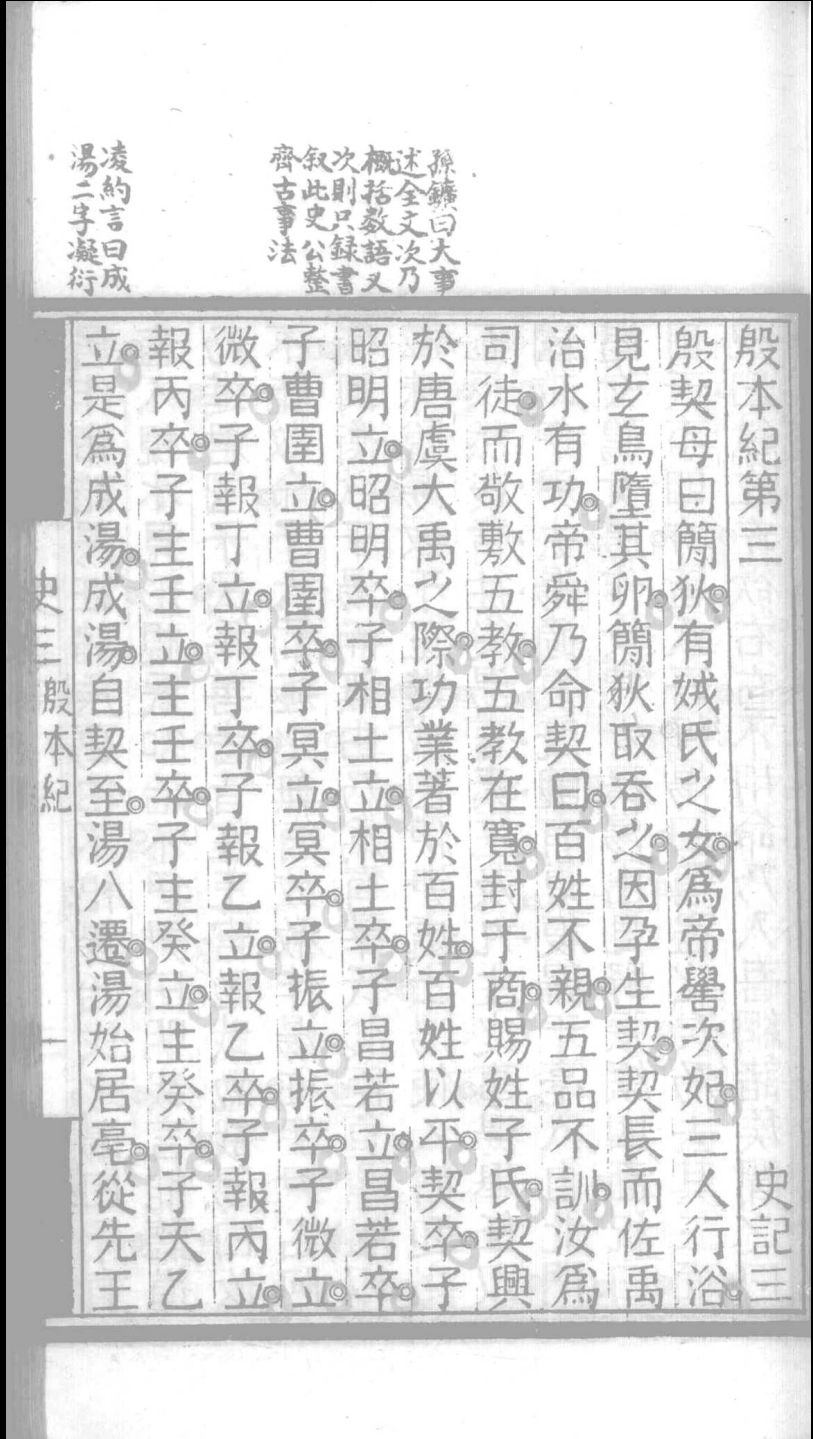 孫鑛曰大事
述全文次乃
概括數語又
次則只録書
叙此史公整
齊古事法
凌約言曰成
湯二字凝衍
殷本紀第三　史記三
殷契母曰簡狄有娀氏之女爲帝嚳次妃三人行浴
見玄鳥墮其卵簡狄取吞之因孕生契契長而佐禹
治水有功帝舜乃命契曰百姓不親五品不訓汝爲
司徒而敬敷五教五教在寬封于商賜姓子氏契興
於唐虞大禹之際功業著於百姓百姓以平契卒子
昭明立昭明卒子相土立相土卒子昌若立昌若卒
子曹圉立曹圉卒子冥立冥卒子振立振卒子微立
微卒子報丁立報丁卒子報乙立報乙卒子報丙立
報丙卒子主壬立主壬卒子主癸立主癸卒子天乙
立是爲成湯成湯自契至湯八遷湯始居亳從先王
史三　殷本紀　一